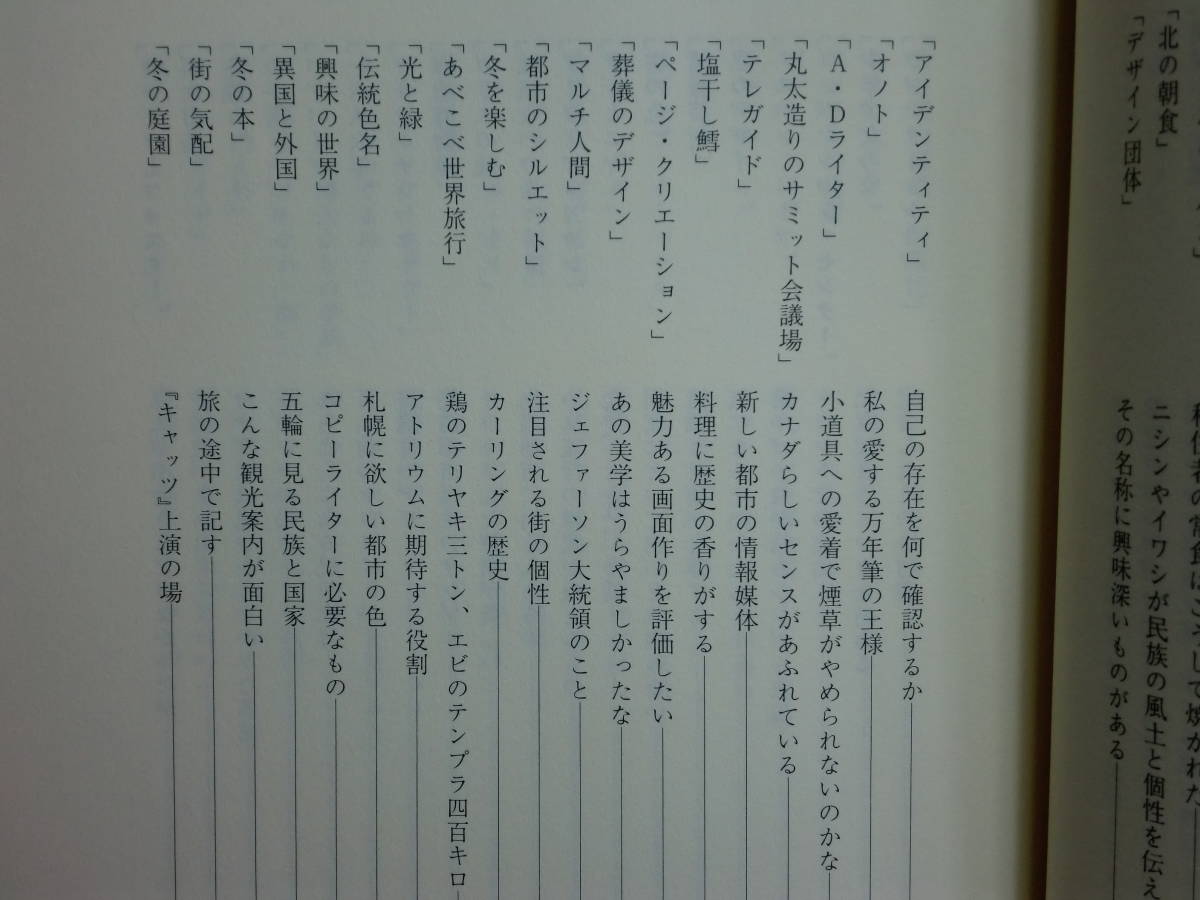 「北の朝食」
ニシンやイワシが民族の風土と個性を伝え
「デザイン団体」
その名称に興味深いものがある
「アイデンティティ」
自己の存在を何で確認するか
「オノト」
私の愛する万年筆の王様
「A・Dライター」
小道具への愛着で煙草がやめられないのかな
「丸太造りのサミット会議場」
カナダらしいセンスがあふれている
「テレガイド」
新しい都市の情報媒体
「塩干し鱈」
料理に歴史の香りがする
「ページ・クリエーション」
魅力ある画面作りを評価したい
「葬儀のデザイン」
あの美学はうらやましかったな
「マルチ人間」
ジェファーソン大統領のこと
「都市のシルエット」
注目される街の個性
「冬を楽しむ」
カーリングの歴史
「あべこべ世界旅行」
鶏のテリヤキ三トン、エビのテンプラ四百キロ
「光と緑」
アトリウムに期待する役割
「伝統色名」
札幌に欲しい都市の色
「興味の世界」
コピーライターに必要なもの
「異国と外国」
五輪に見る民族と国家
「冬の本」
こんな観光案内が面白い
「街の気配」
旅の途中で記す
「冬の庭園」
『キャッツ』上演の場